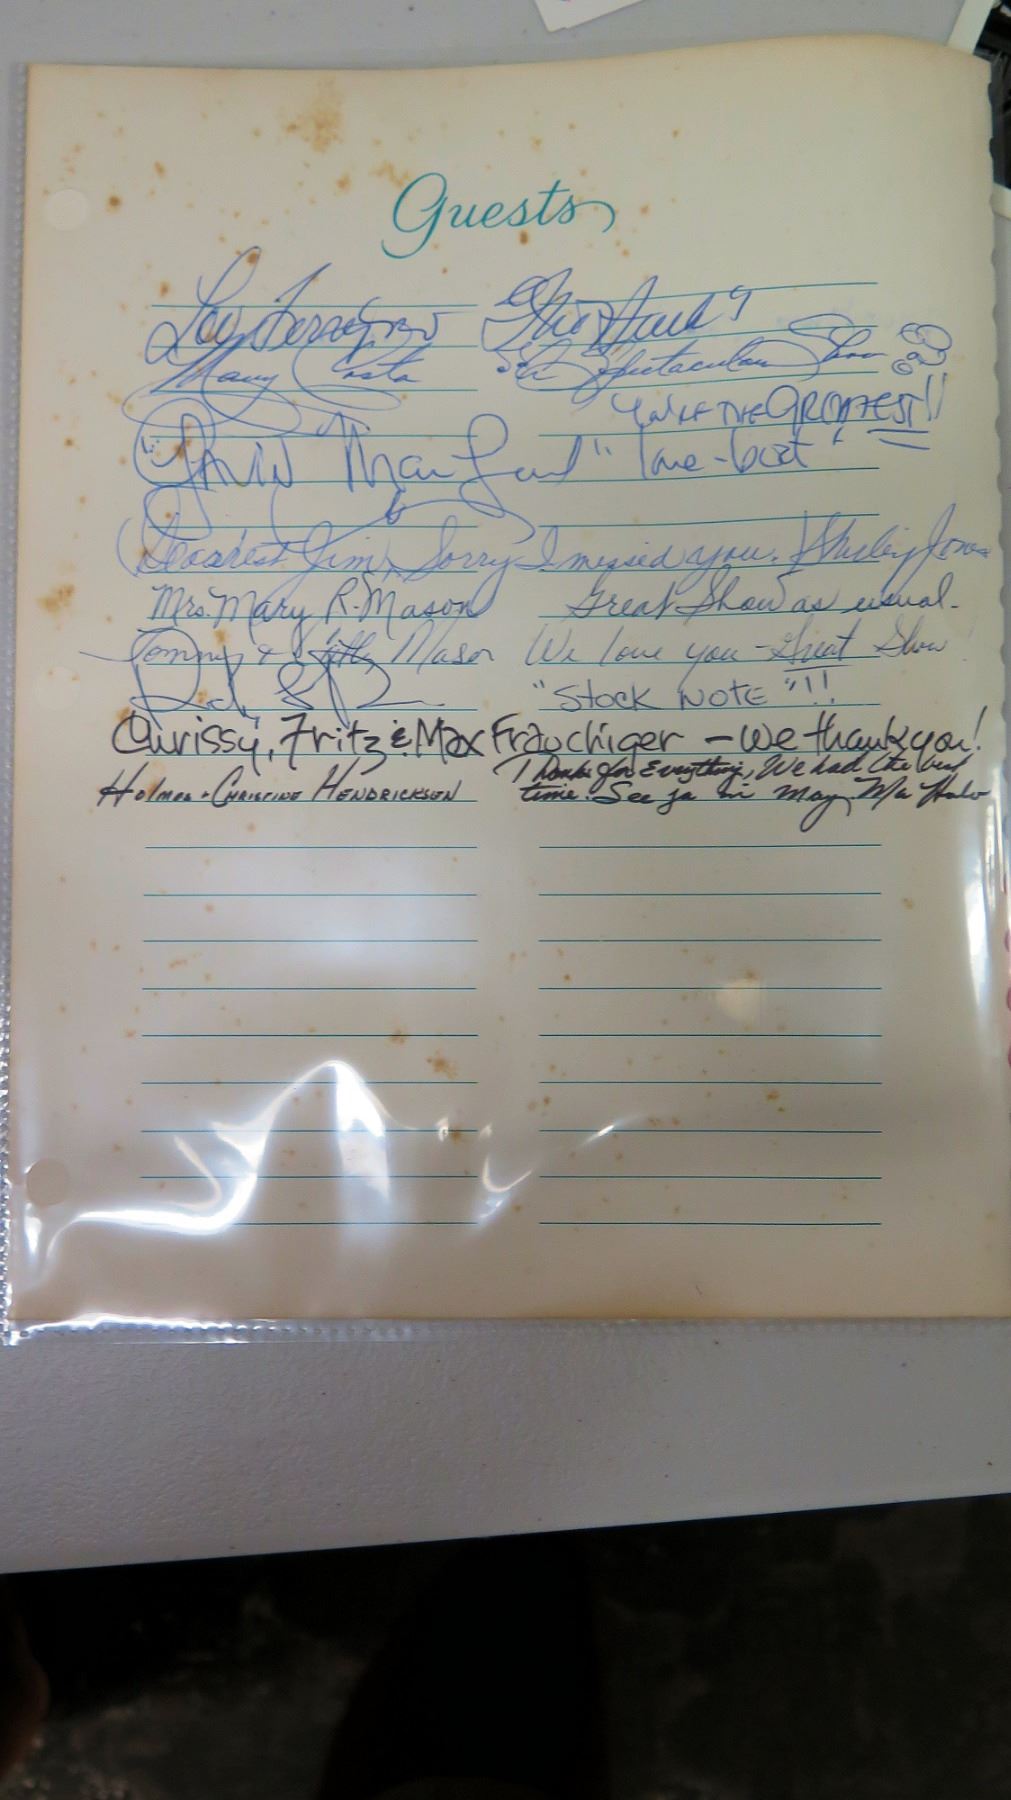 Guests
Lou Ferrigno "The Hulk"
Mary Costa Spectacular Show
You're THE GREATEST!!
Mac "Love-boat"
Dearest Jim, Sorry I missed you. Shirley Jones
Mrs. Mary R. Mason Great Show as usual.
Tommy & Mason We love you - Great Show!
"STOCK NOTE"!!
Chrissy, Fritz & Max Frauchiger - We thank you!
Thanks for Everything, We had the best
Holmes + CHRISTINE HENDRICKSEN time. See ya in may, Ma Halo